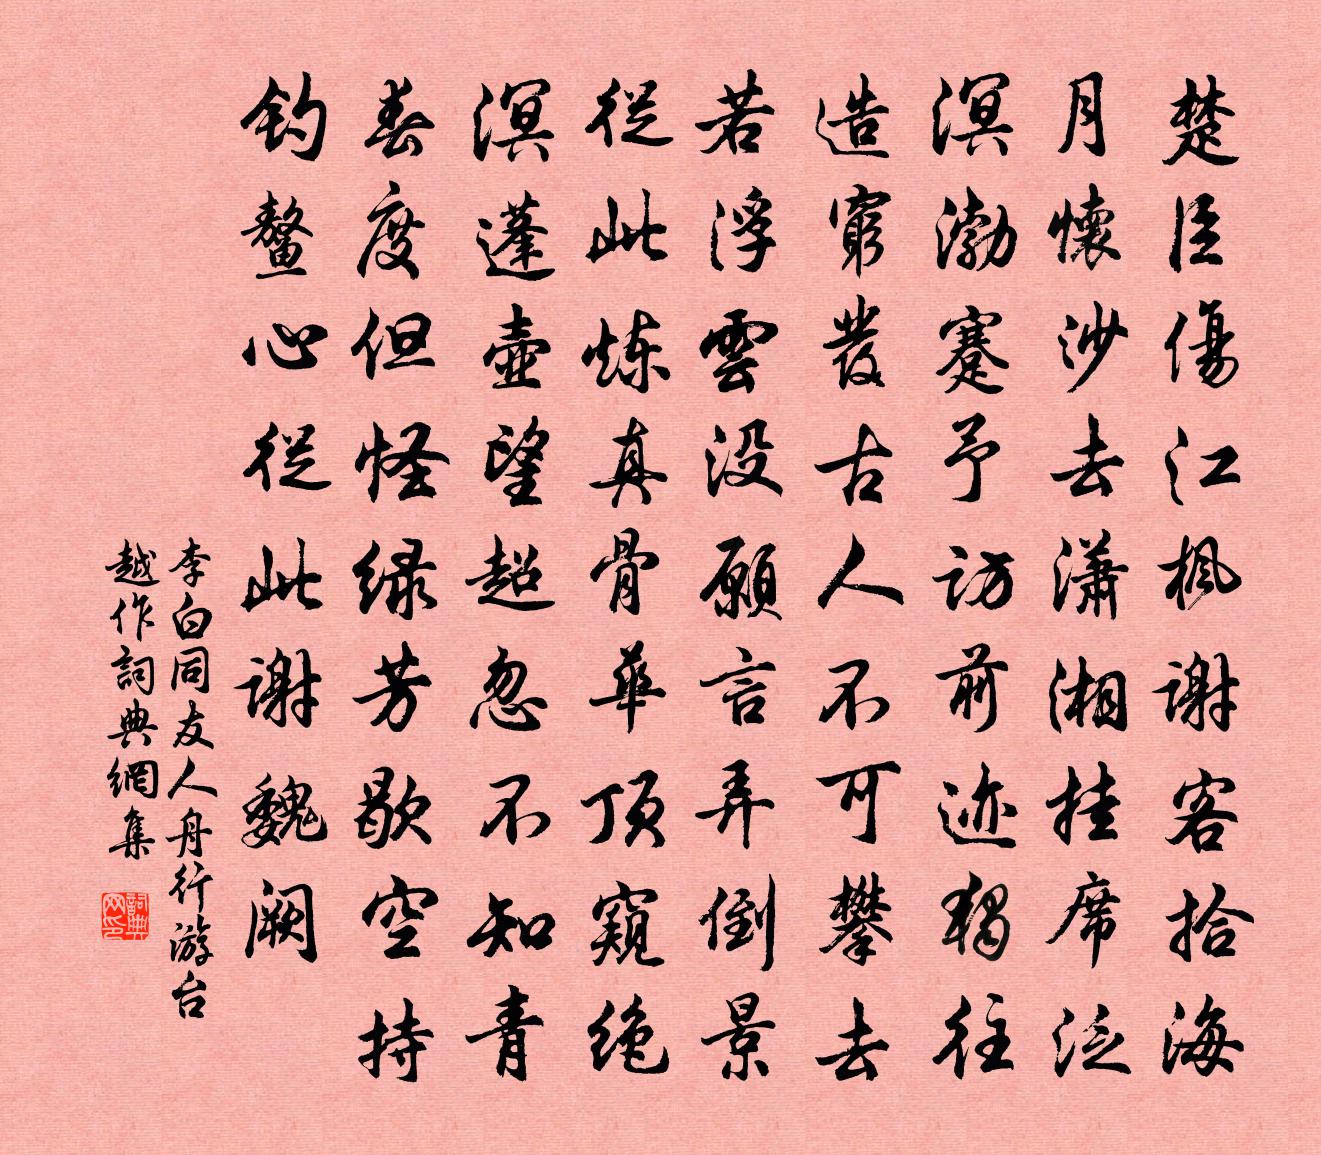 楚臣傷江楓謝客拾海
月懷沙去瀟湘挂席泛
溟渤蹇予訪前迹獨往
造窮發古人不可攀去
若浮雲没願言弄倒景
從此炼真骨華頂窺绝
溟蓬壺望超忽不知青
春度但怪緑芳歇空持
釣鳌心從此謝魏闕
李白同友人舟行游台
越作詞典網集
詞典网印